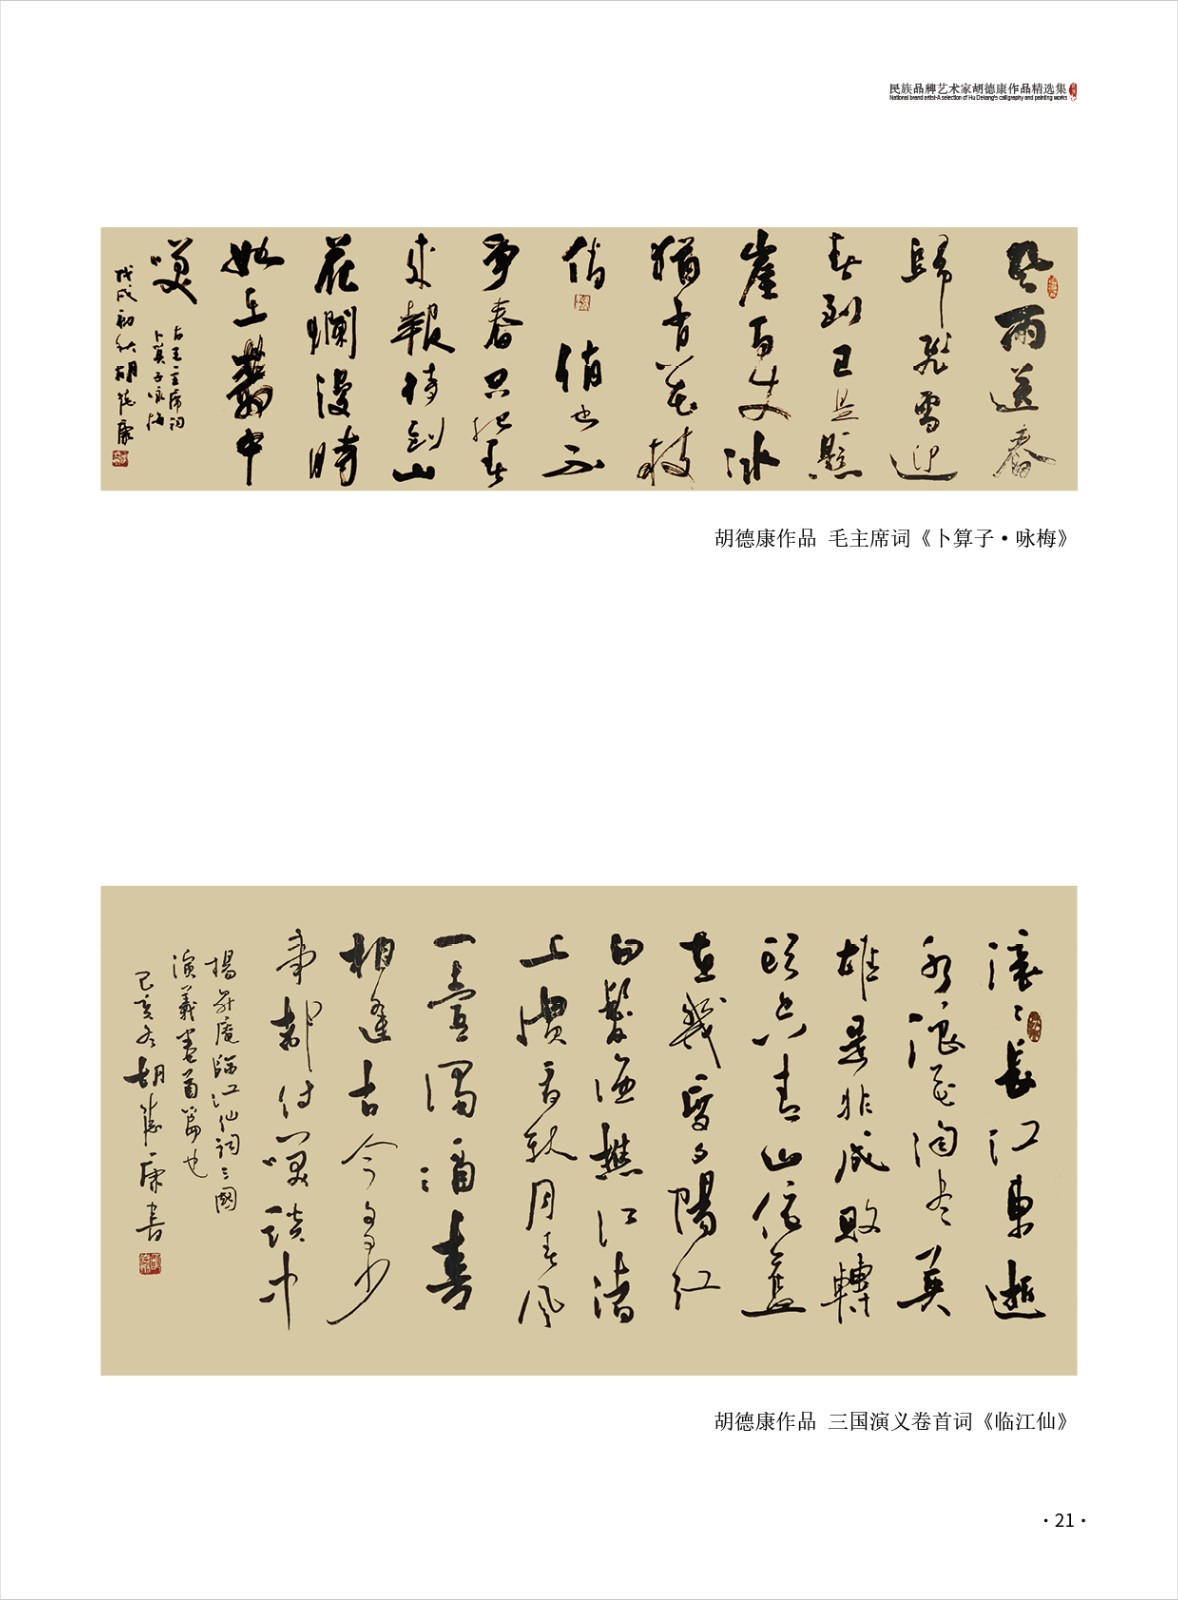 民族品牌艺术家胡德康作品精选集
National brand artist-A selection of Hu Dekang's calligraphy and painting works
風雨送春
歸飛雪迎
春到已是懸
崖百丈冰
猶有花枝
俏俏也不
爭春只把春
来報待到山
花爛漫時
她在叢中
笑
右毛主席词
卜算子咏梅
戊戌初秋胡德康
胡德康作品 毛主席词《卜算子·咏梅》
滚々長江東逝
水浪花淘尽英
雄是非成敗轉
頭空青山依舊
在幾度夕陽紅
白髮漁樵江渚
上慣看秋月春风
一壺濁酒喜
相逢古今多少
事都付笑談中
楊升庵臨江仙詞三國
演義卷首篇也
己亥冬胡德康書
胡德康作品 三国演义卷首词《临江仙》
·21·